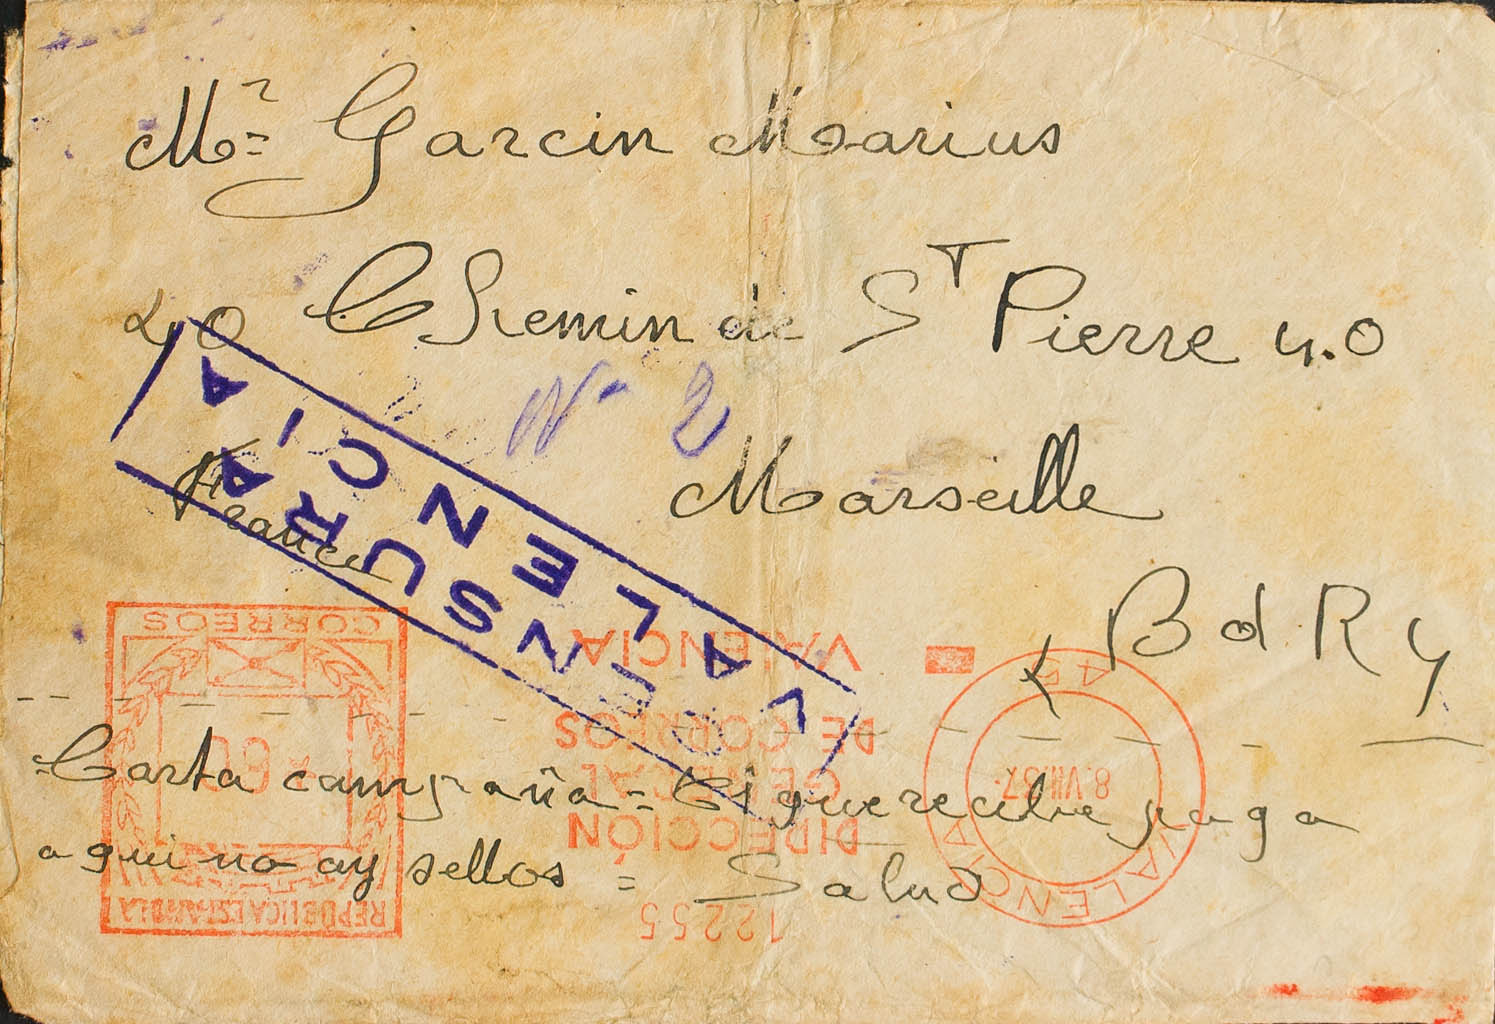 Mr Garcin Marius
40 Chemin de St Pierre 40
Nº 2
Marseille
France
BdR
CENSURA
VALENCIA
Carta campaña = El que recibe paga
aqui no ay sellos = Salud
CORREOS
60
REPÚBLICA ESPAÑOLA
12255
DIRECCIÓN
GENERAL
DE CORREOS
VALENCIA
VALENCIA
8.VII.37